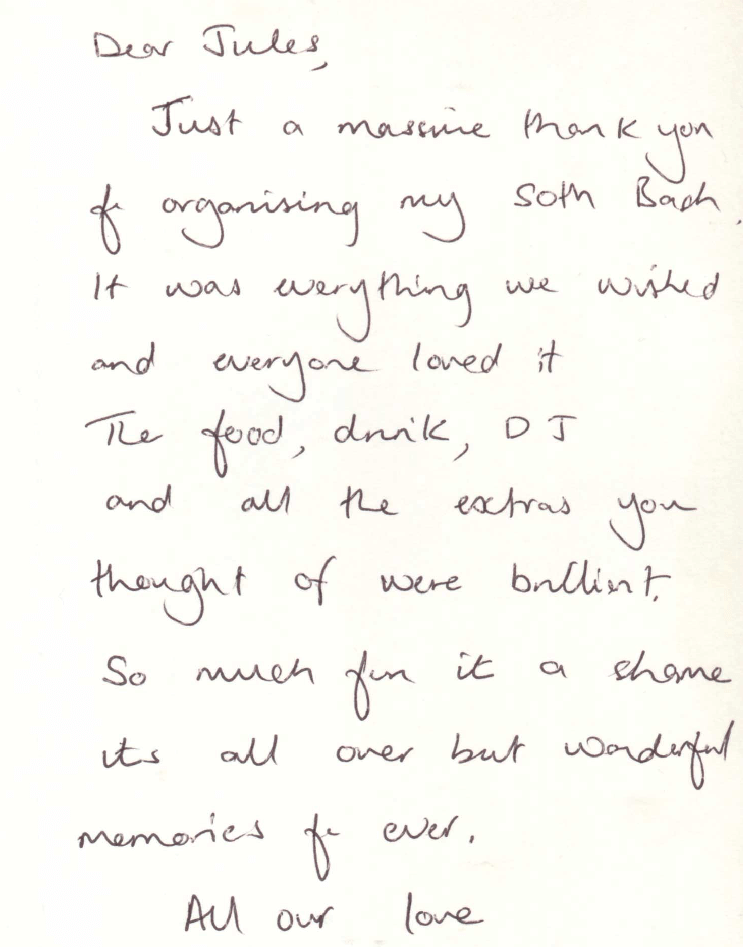 Dear Jules,
Just a massive thank you
for organising my 50th Bash.
It was everything we wished
and everyone loved it
The food, drink, DJ
and all the extras you
thought of were brillient.
So much fun it a shame
its all over but wonderful
memories for ever.
All our love